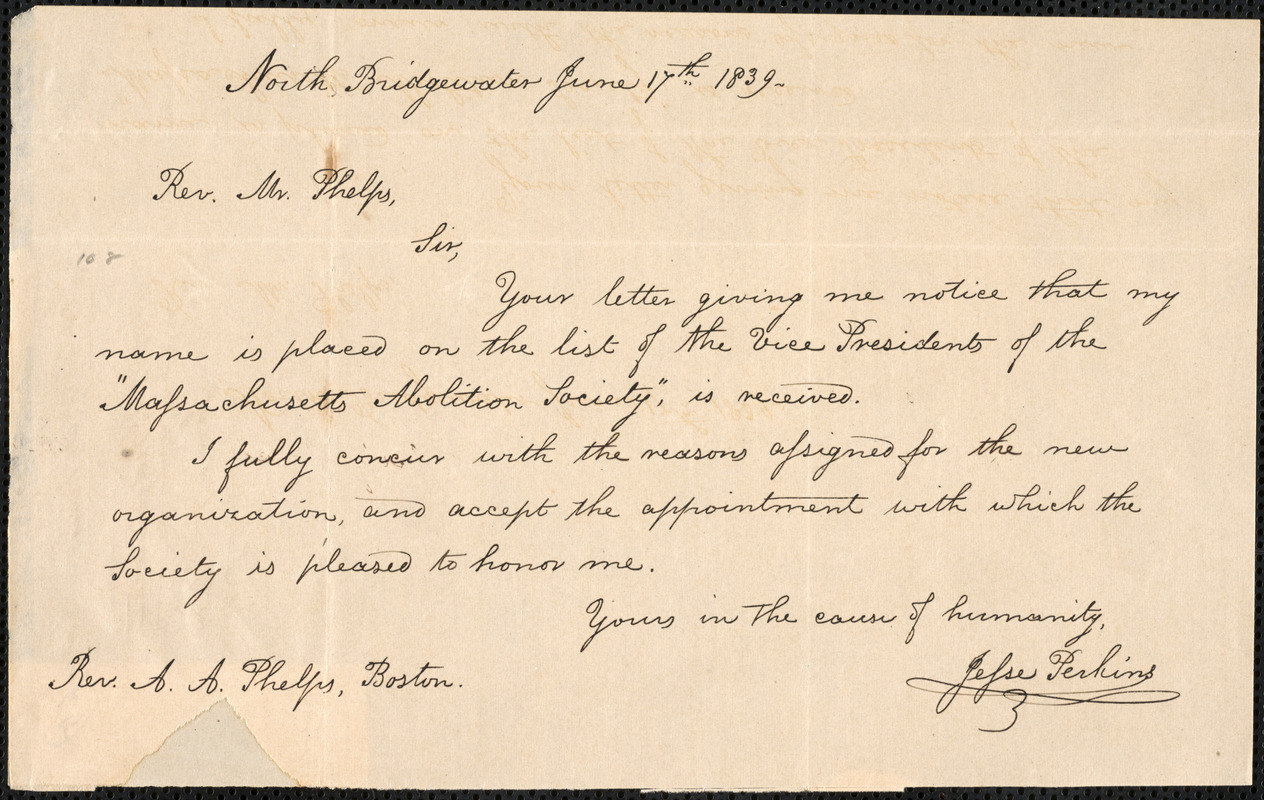 North Bridgewater June 17th 1839-
Rev. Mr. Phelps,
Sir,
108
Your letter giving me notice that my
name is placed on the list of the Vice Presidents of the
"Maſsachusetts Abolition Society", is received.
I fully concur with the reasons aſsigned for the new
organization, and accept the appointment with which the
Society is pleased to honor me.
Yours in the cause of humanity,
Jeſse Perkins
Rev. A. A. Phelps, Boston.